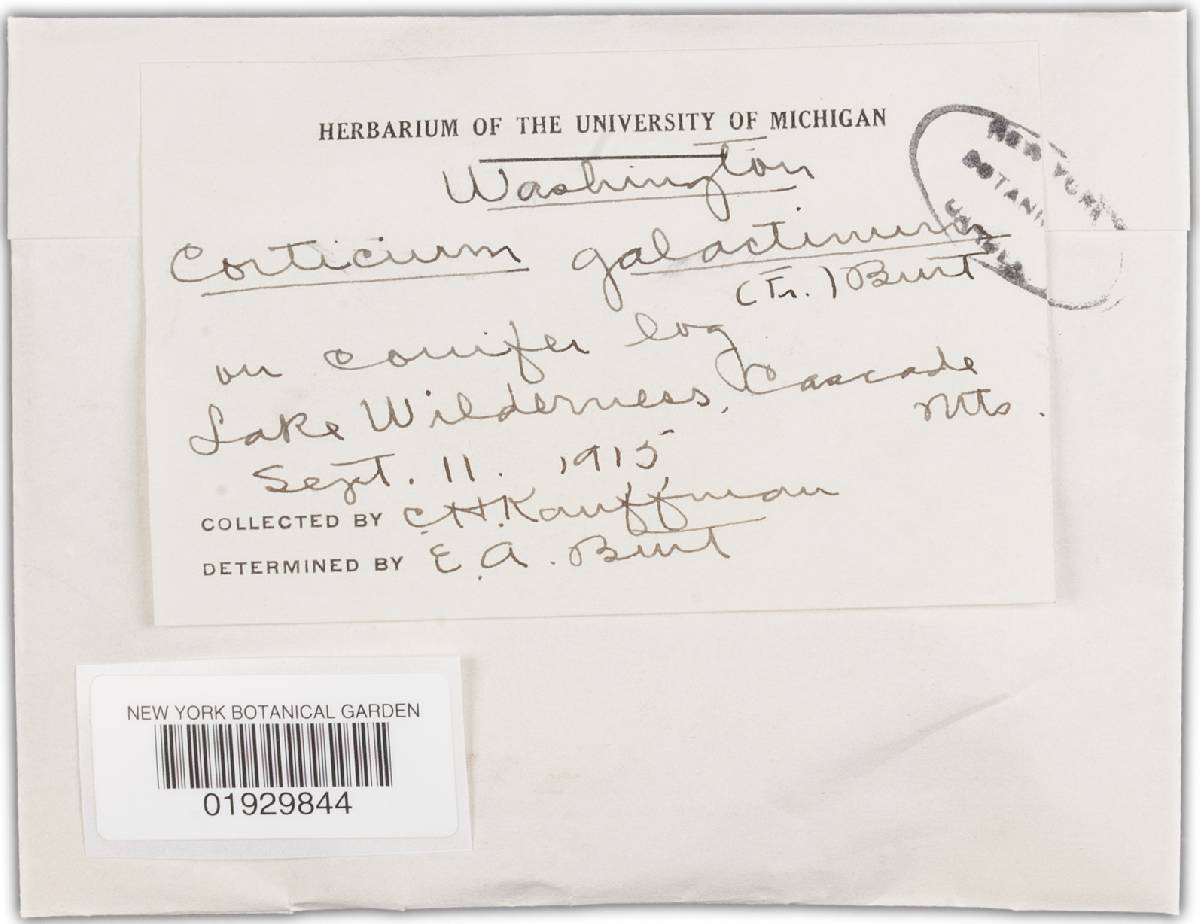 HERBARIUM OF THE UNIVERSITY OF MICHIGAN
Washington
Corticium galactinum
(Fr.) Burt
on conifer log
Lake Wilderness, Cascade
Mts.
Sept. 11. 1915
COLLECTED BY C.H. Kauffman
DETERMINED BY E. A. Burt
NEW YORK
BOTANI
NEW YORK BOTANICAL GARDEN
01929844